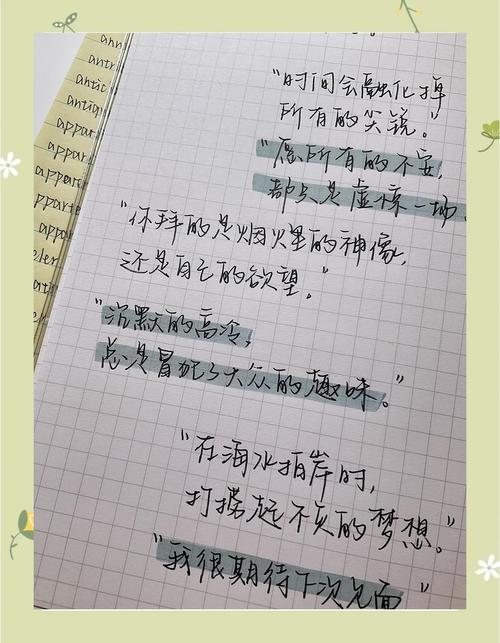 ann
antr
antic
"时间会融化掉
所有的尖锐。"
"愿所有的不安,
都只是虚惊一场
"你拜的是烟火里的神像,
还是自己的欲望。"
"沉默的高冷,
总是冒犯了大众的趣味。"
"在海水拍岸时,
打捞起不的梦想。"
"我很期待下次见面"